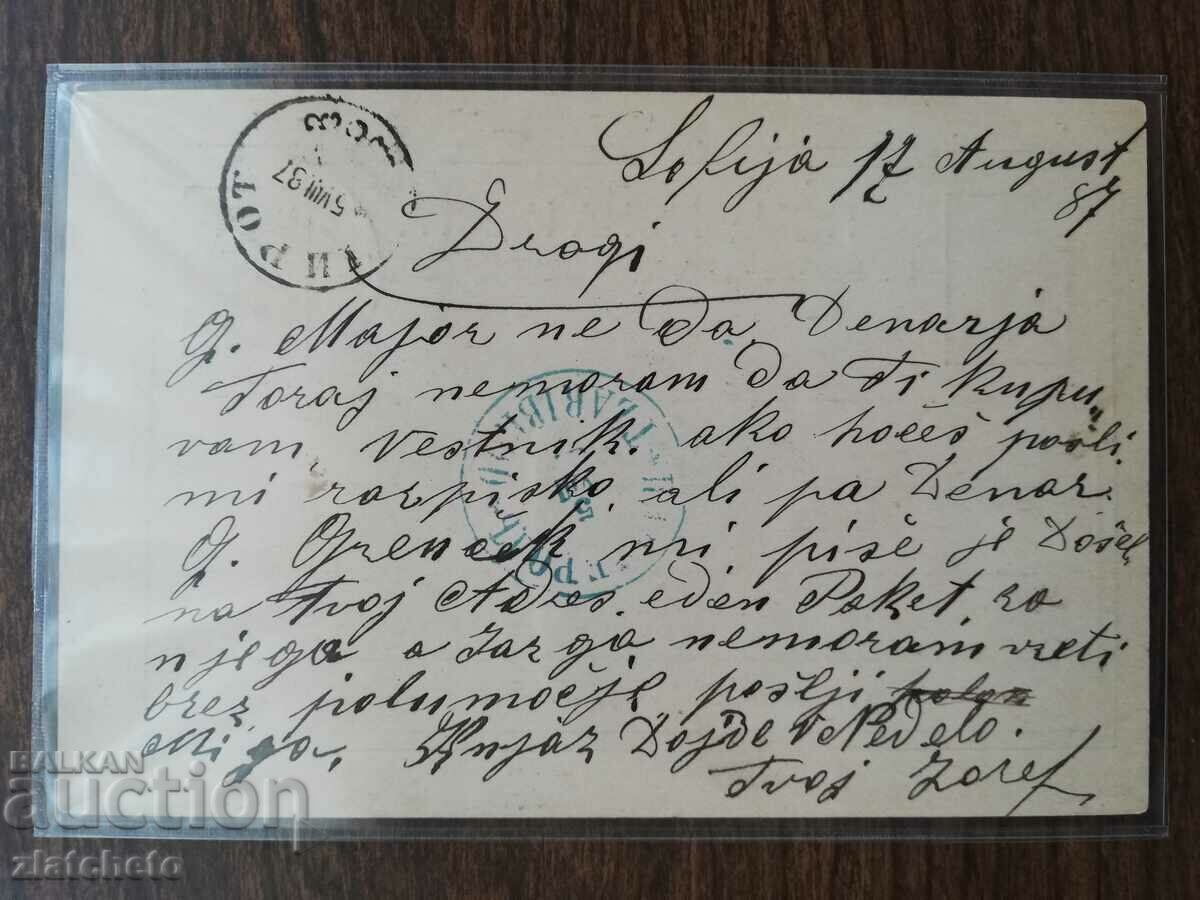 Sofija 17 August
87
Dragi
G. Major ne da Denarja
Toraj nemoram da Ti kupu
vam vestnik. ako hočeš pošli
mi razpisko ali pa Denar.
G. mi piše je Došel
na Tvoj Adres. eden Paket za
njega a Jaz ga nemoram vzeti
brez polumočje pošlji
mi ga. Knjaz Dojde v Nedelo.
Tvoj Jozef
ПИРОТ
5 VIII 87
BALKAN
auction
zlatcheto